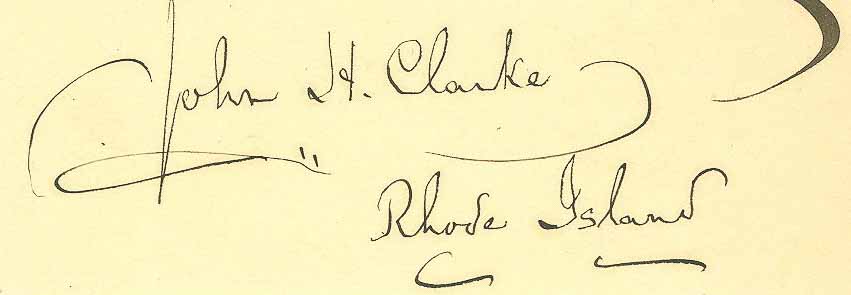 John H. Clarke
Rhode Island